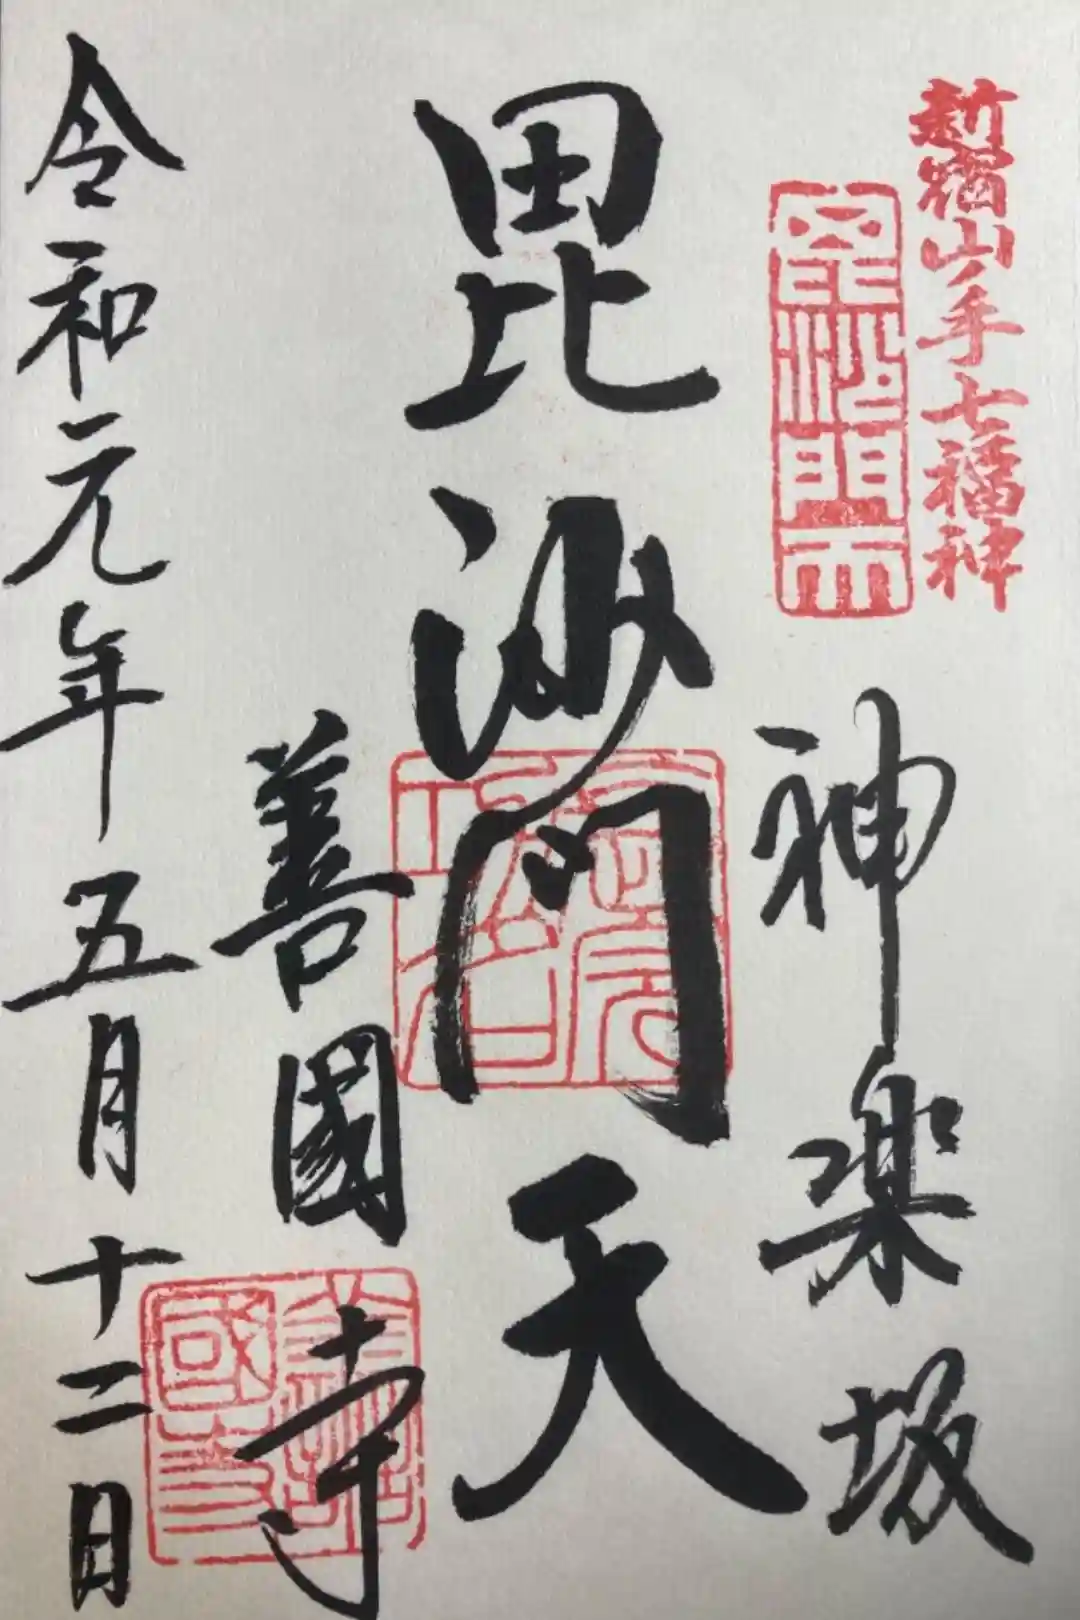 新宿山ノ手七福神
毘沙門天
神楽坂
毘沙門天
善國寺
善國寺
令和元年五月十二日